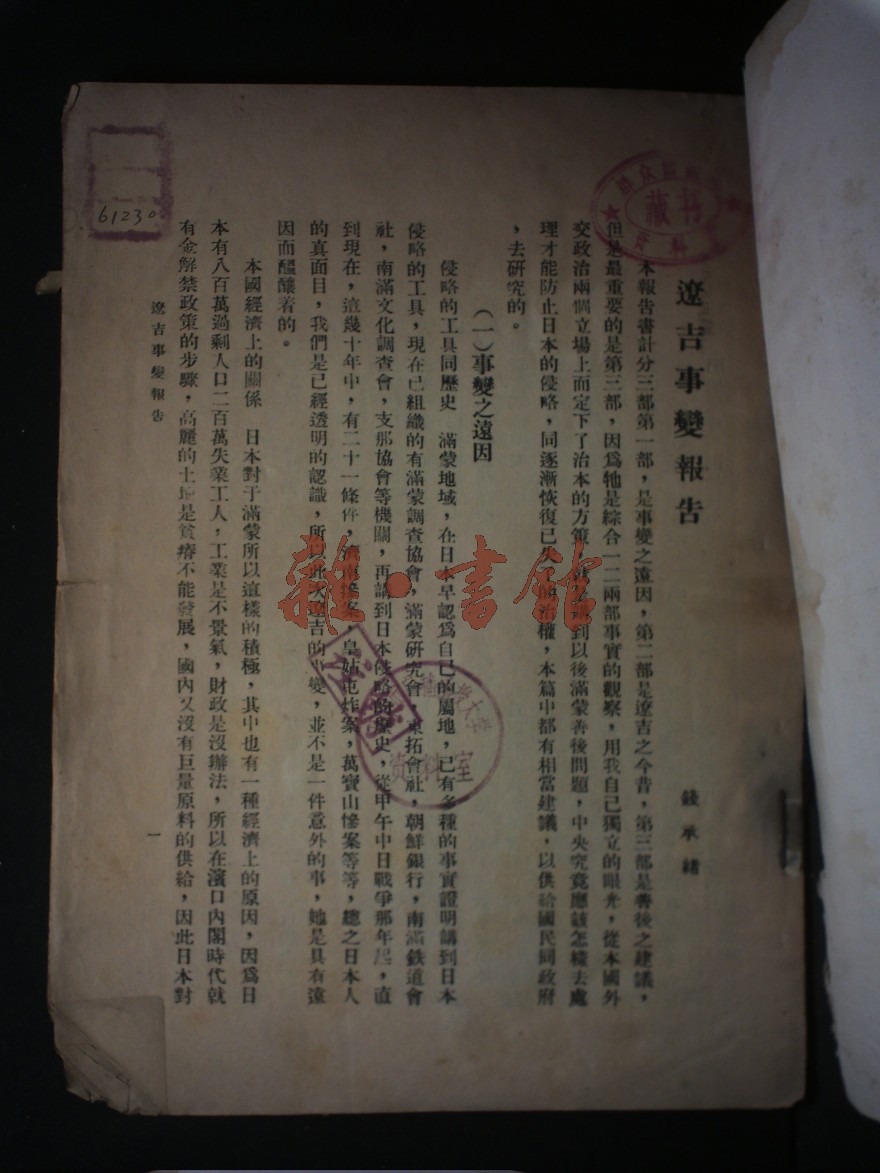 遼吉事變報告
錢承緒
本報告書計分三部第一部,是事變之遠因,第二部是遼吉之今昔,第三部是善後之建議,
但是最重要的是第三部,因爲牠是綜合一二兩部事實的觀察,用我自己獨立的眼光,從本國外
交政治兩個立場上面定下了治本的方策,講到以後滿蒙善後問題,中央究竟應該怎樣去處
理才能防止日本的侵略,同逐漸恢復已失的治權,本篇中都有相當建議,以供給國民同政府
,去研究的。
(一)事變之遠因
侵略的工具同歷史 滿蒙地域,在日本早認爲自己的屬地,已有多種的事實證明講到日本
侵略的工具,現在已組織的有滿蒙調查協會,滿蒙研究會,東拓會社,朝鮮銀行,南滿鉄道會
社,南滿文化調查會,支那協會等機關,再講到日本侵略的歷史,從甲午中日戰爭那年起,直
到現在,這幾十年中,有二十一條件,濟南慘案,皇姑屯炸案,萬寶山慘案等等,總之日本人
的真面目,我們是已經透明的認識,所以此次遼吉的事變,並不是一件意外的事,她是具有遠
因而醞釀着的。
本國經濟上的關係 日本對于滿蒙所以這樣的積極,其中也有一種經濟上的原因,因爲日
本有八百萬過剩人口二百萬失業工人,工業是不景氣,財政是沒辦法,所以在濱口內閣時代就
有金解禁政策的步驟,高麗的土地是貧瘠不能發展,國內又沒有巨量原料的供給,因此日本對
遼吉事變報告
一
61230
藏书
資料
资料室
雜·書館